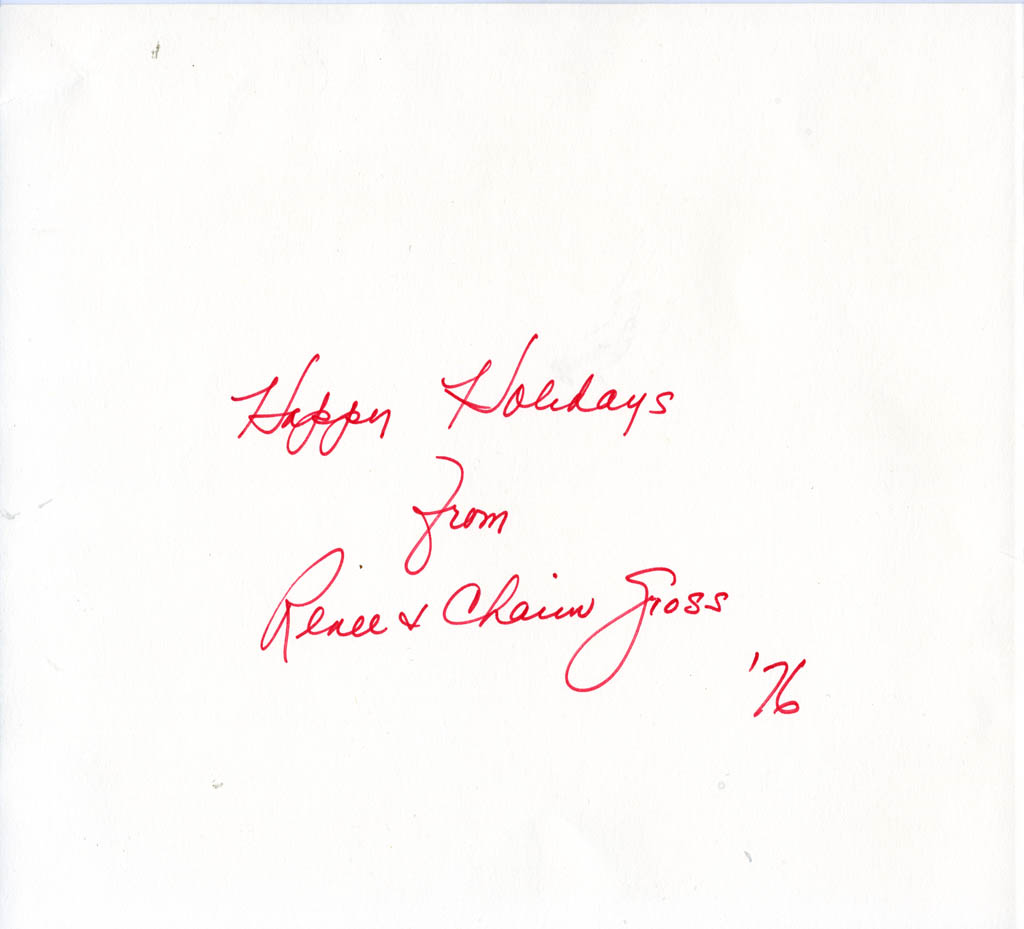 Happy Holidays
from
Renee & Chaim Gross
'76